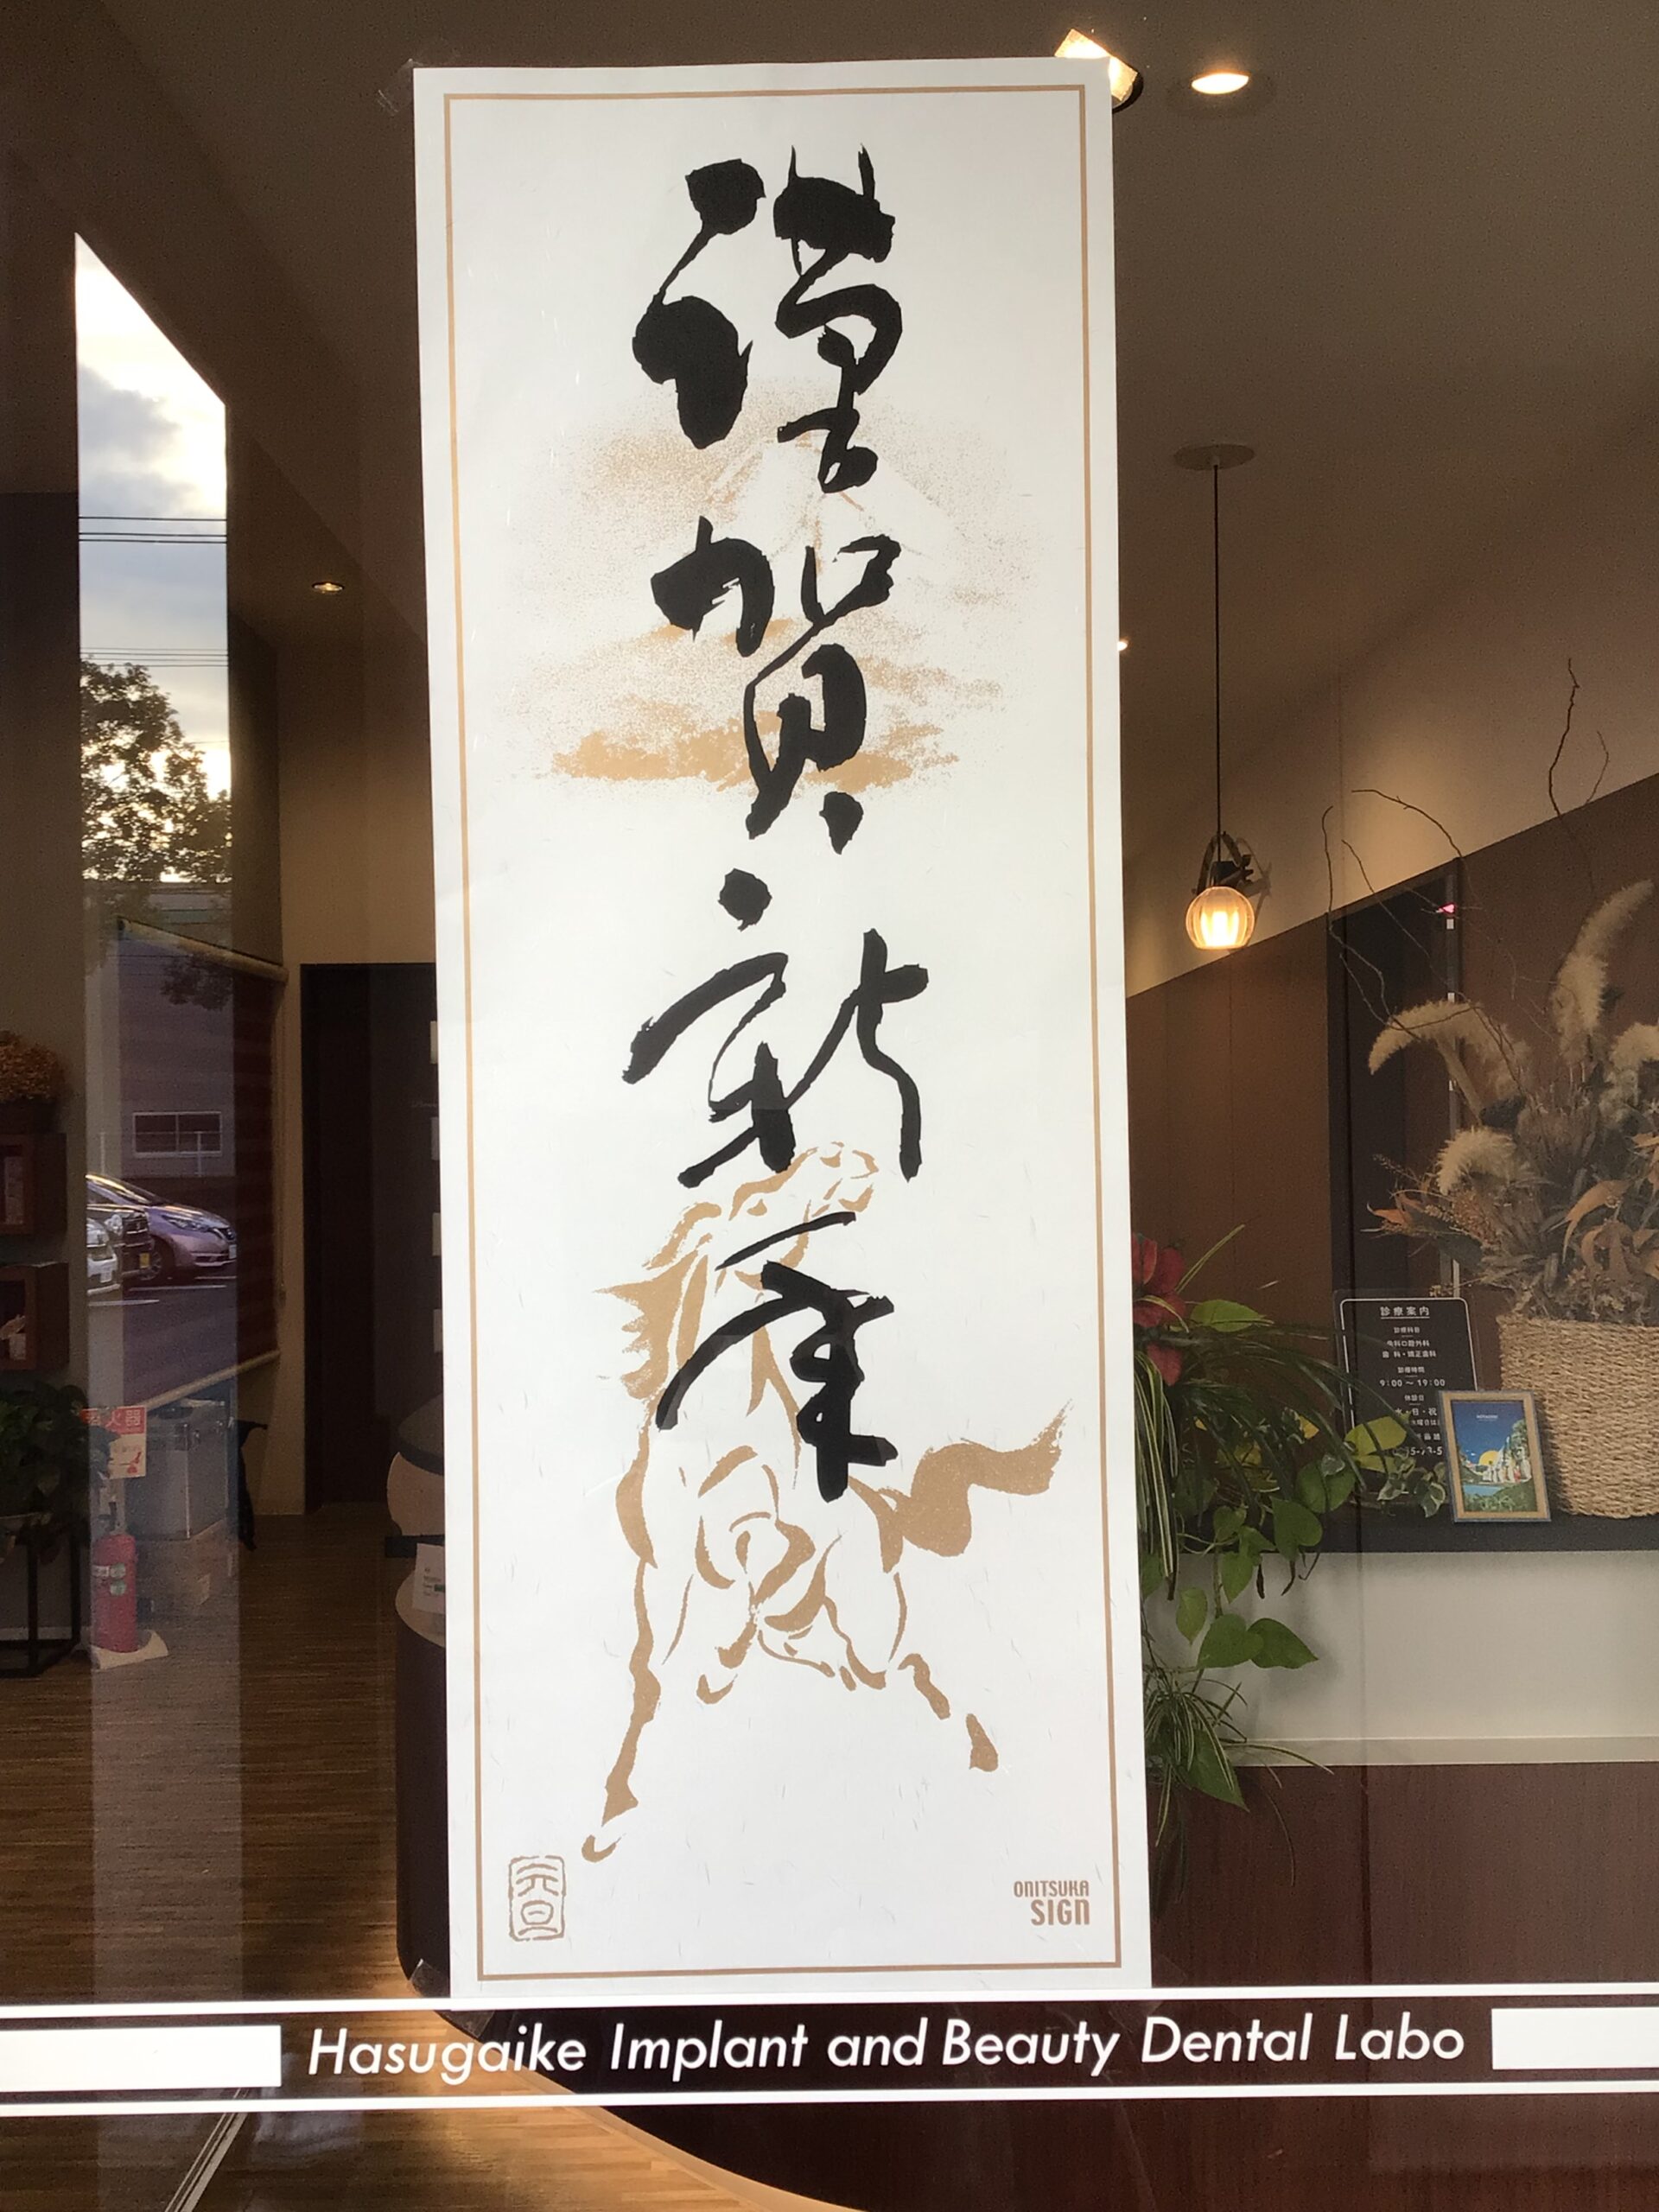 謹賀新年
元旦
ONITSUKA
SIGN
Hasugaike Implant and Beauty Dental Labo
診療案内
診療科目
歯科口腔外科
歯科・矯正歯科
診療時間
9:00～19:00
休診日
日・祝
火器